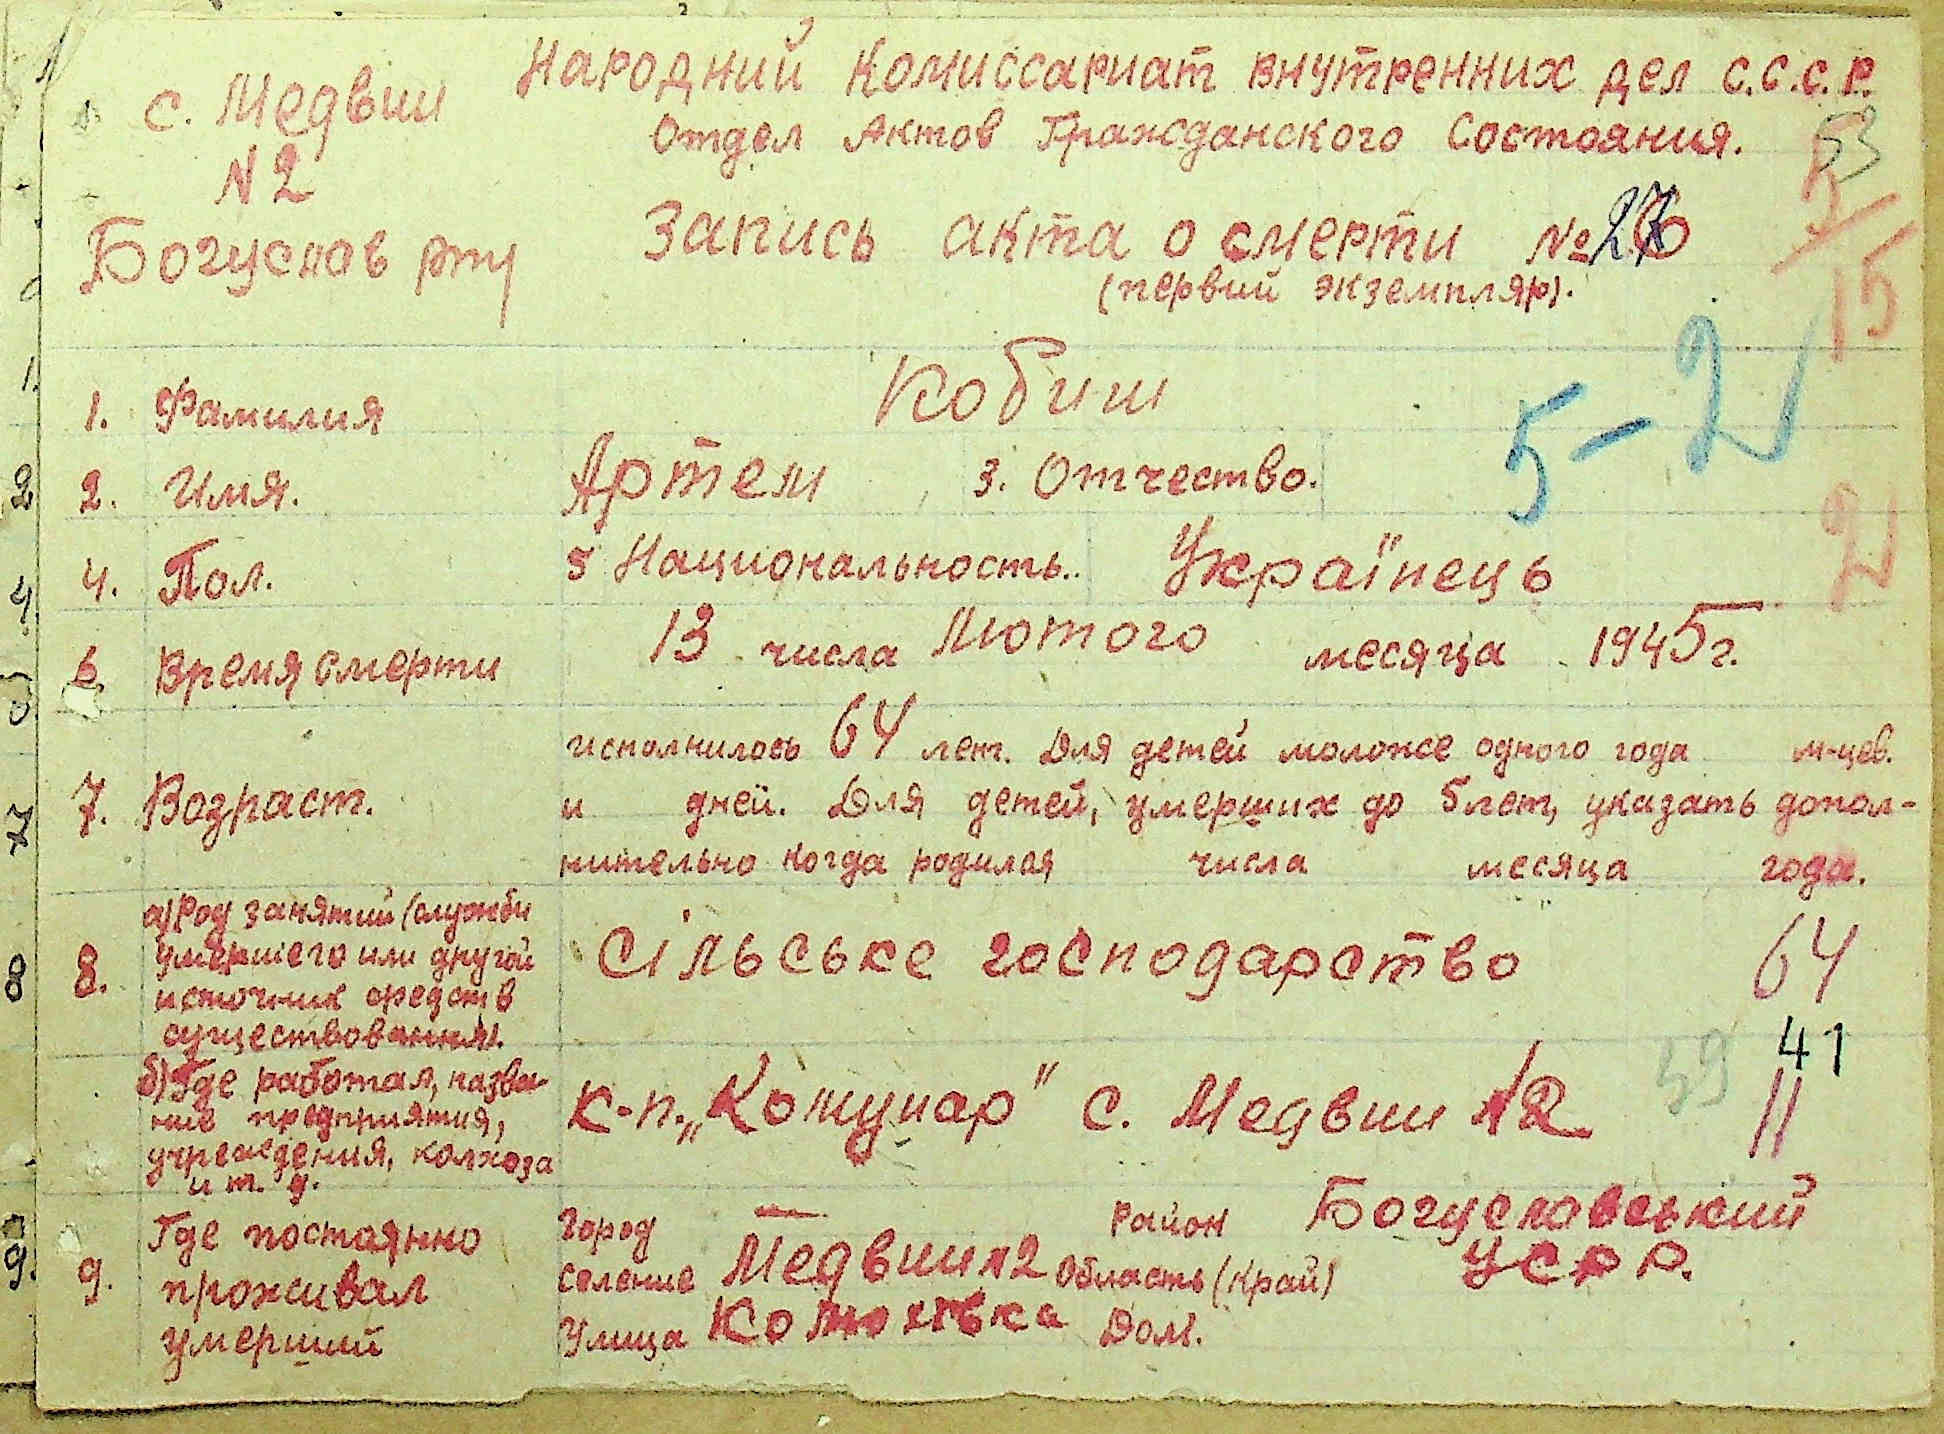 с. Медвин
N 2
Богуслов рту
Народний Комиссариат внутренних дел С.С.С.Р.
Отдел Актов Гражданского Состояния.
53
5/15
Запись акта о смерти №27
(первий экземпляр).
1. Фамилия Кобиш
5-2
2. Имя. Артем 3. Отчество.
2
4. Пол. 5 Национальность.. Українець
6. Время смерти 13 числа Лютого месяца 1945г.
7. Возраст. исполнилось 64 лет. Для детей моложе одного года м-цев.
и дней. Для детей, умерших до 5 лет, указать допол-
нительно когда родился числа месяца года.
8. а) Род занятий (служби
умершего или другой
источник средств
существования.
Сільське господарство 64
41
б) Где работал, назва-
ние предприятия,
учреждения, колхоза
и т. д.
к-п. „Комунар" с. Медвин N2 59
11
9. Где постоянно
проживал
умерший
Город — Район Богуславський
Селение Медвин N2 Область (край) УСРР.
Улица Дом.
1.
2
4.
5
7
8
9.